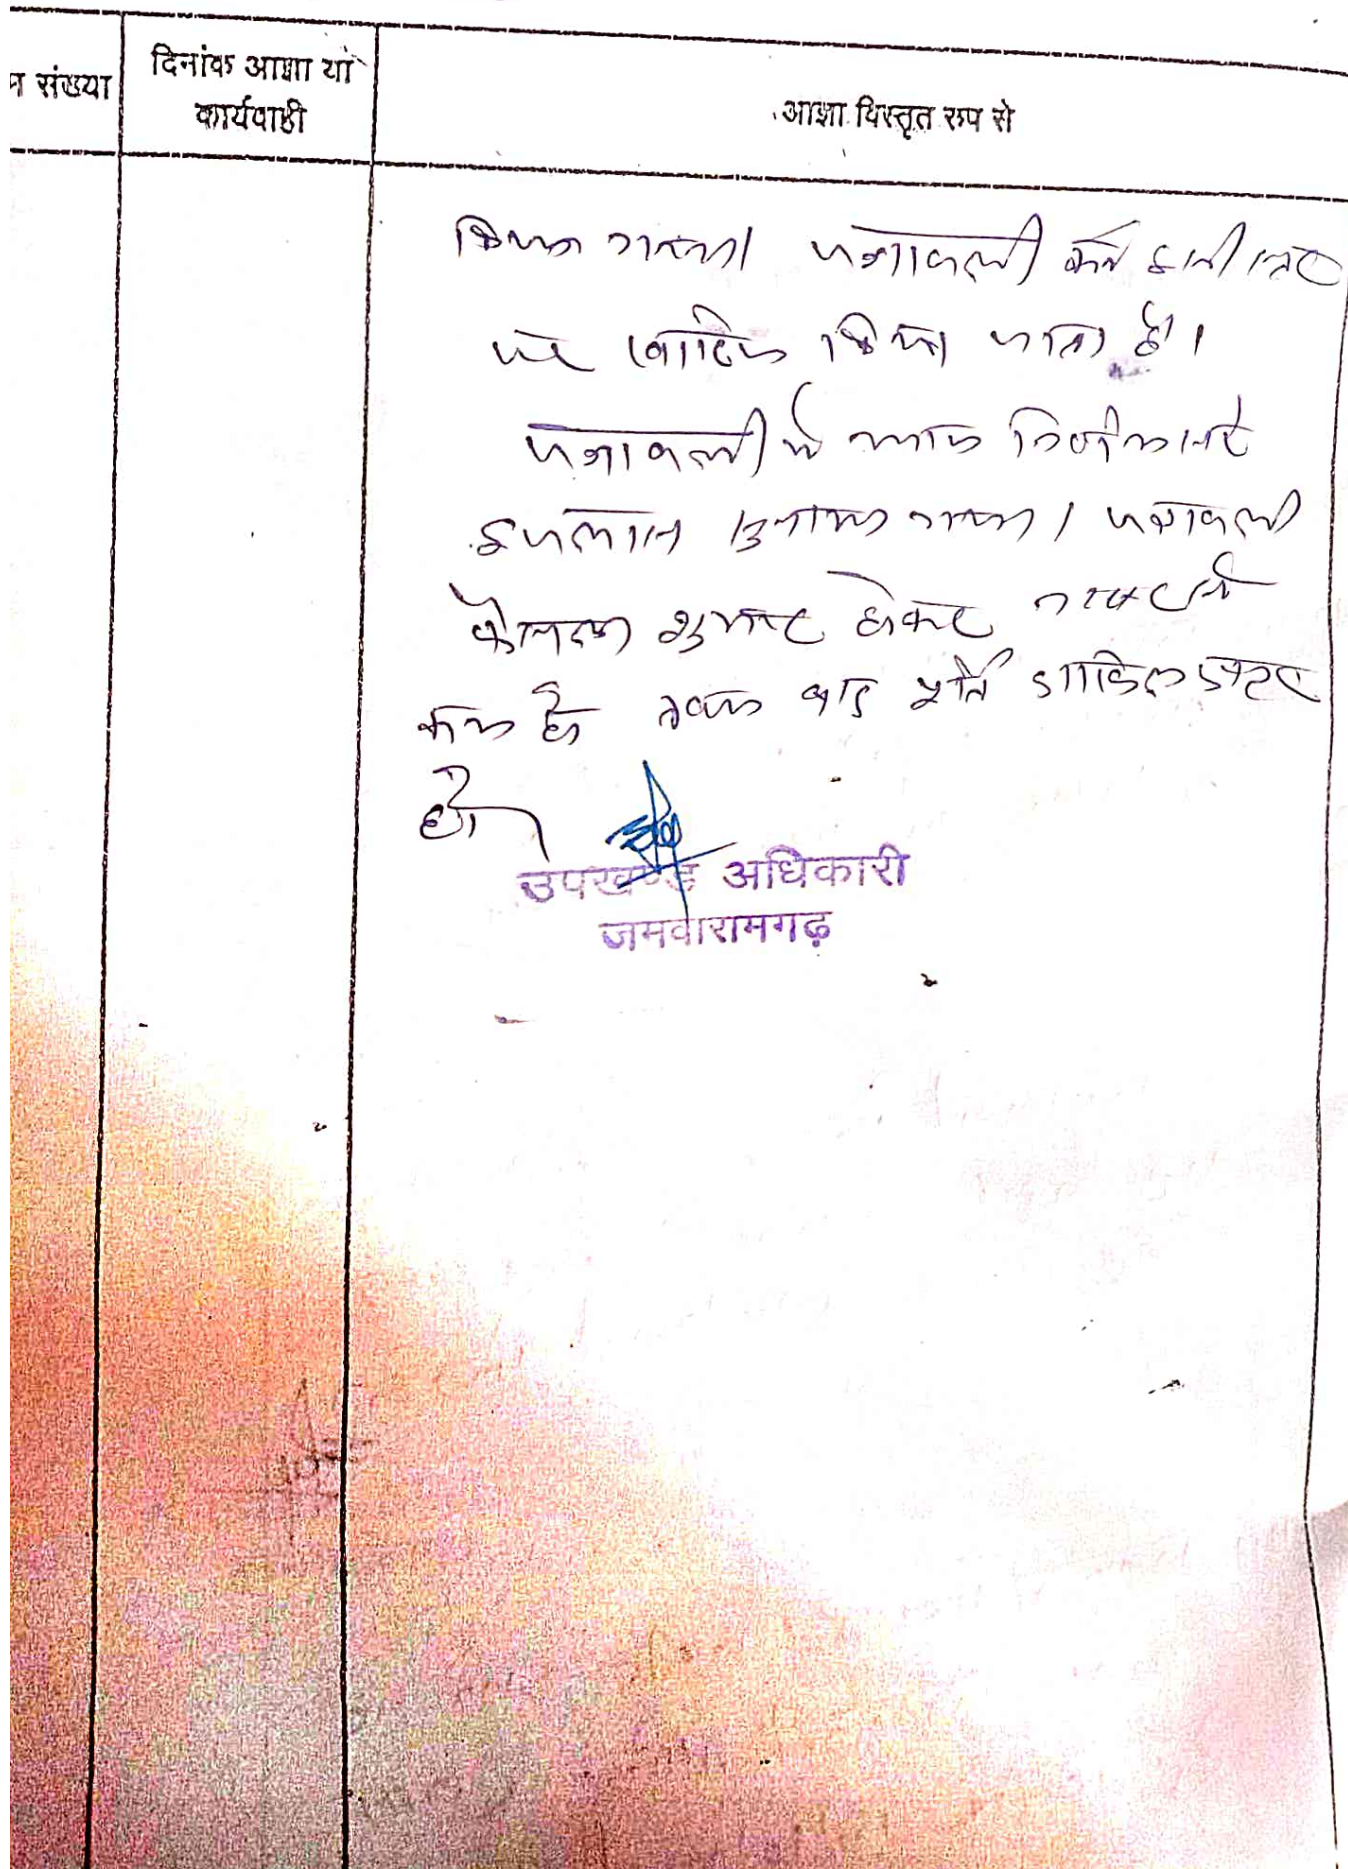 संख्या
दिनांक आज्ञा या
कार्यवाही
आज्ञा विस्तृत रूप से
किया गया। पत्रावली
पर खारिज किया जाता है।
पत्रावली में आज निर्णय
इजलास सुनाया गया। पत्रावली
फैसला शुमार होकर नम्बर से
कम हो बाद पूर्ति दाखिल दफ्तर
हो।
उपखण्ड अधिकारी
जमवारामगढ़